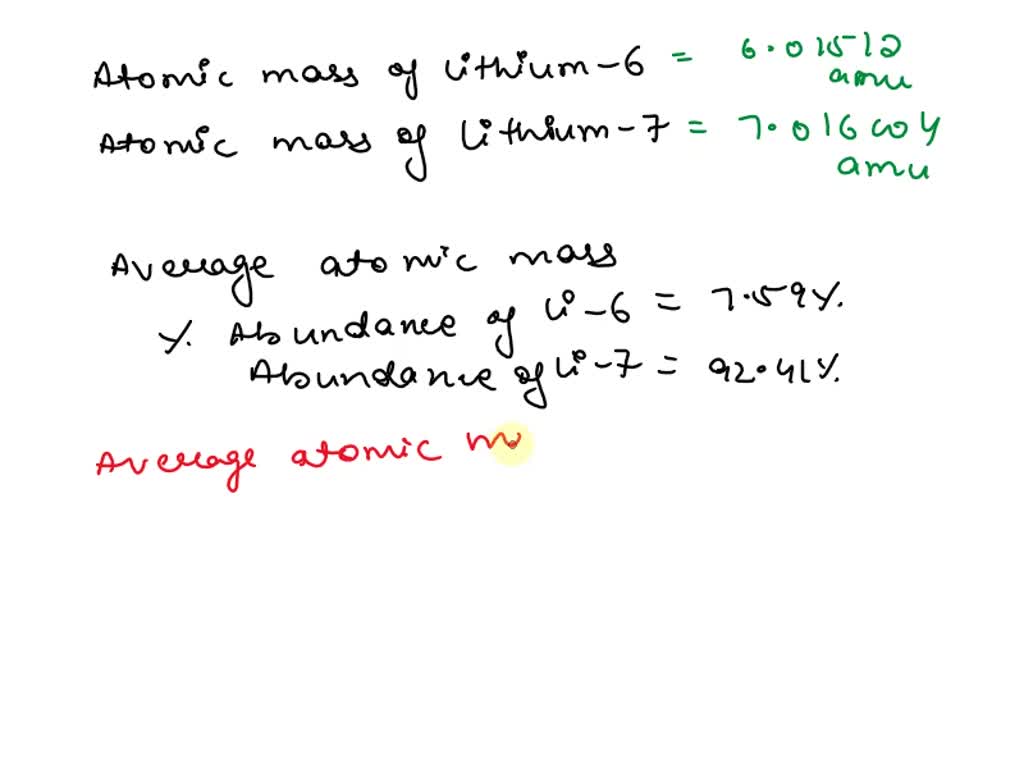 Atomic mass of Lithium-6 = 6.01512 amu
Atomic mass of Lithium-7 = 7.016004 amu
Average atomic mass
% Abundance of Li-6 = 7.59%.
Abundance of Li-7 = 92.41%.
Average atomic m